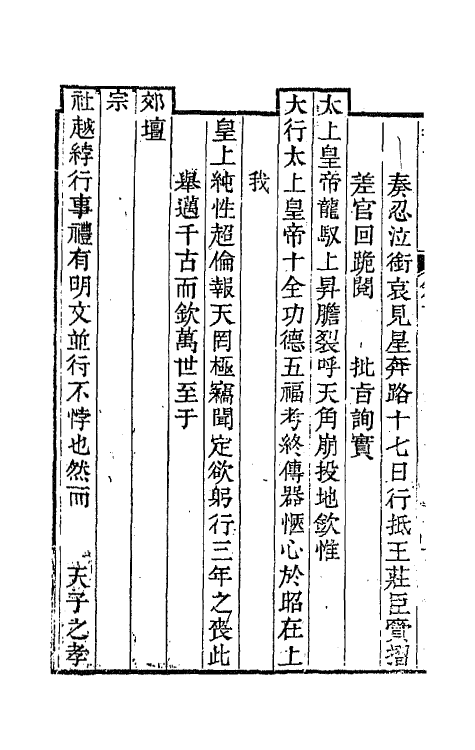 奏忍泣銜哀見星奔路十七日行抵王莊臣賫摺
差官回跪閱 批旨詢實
太上皇帝龍馭上昇膽裂呼天角崩投地欽惟
大行太上皇帝十全功德五福考終傳器愜心於昭在上
我
皇上純性超倫報天罔極竊聞定欲躬行三年之喪此
舉邁千古而欽萬世至于
郊壇
宗
社越紼行事禮有明文並行不悖也然而 天子之孝